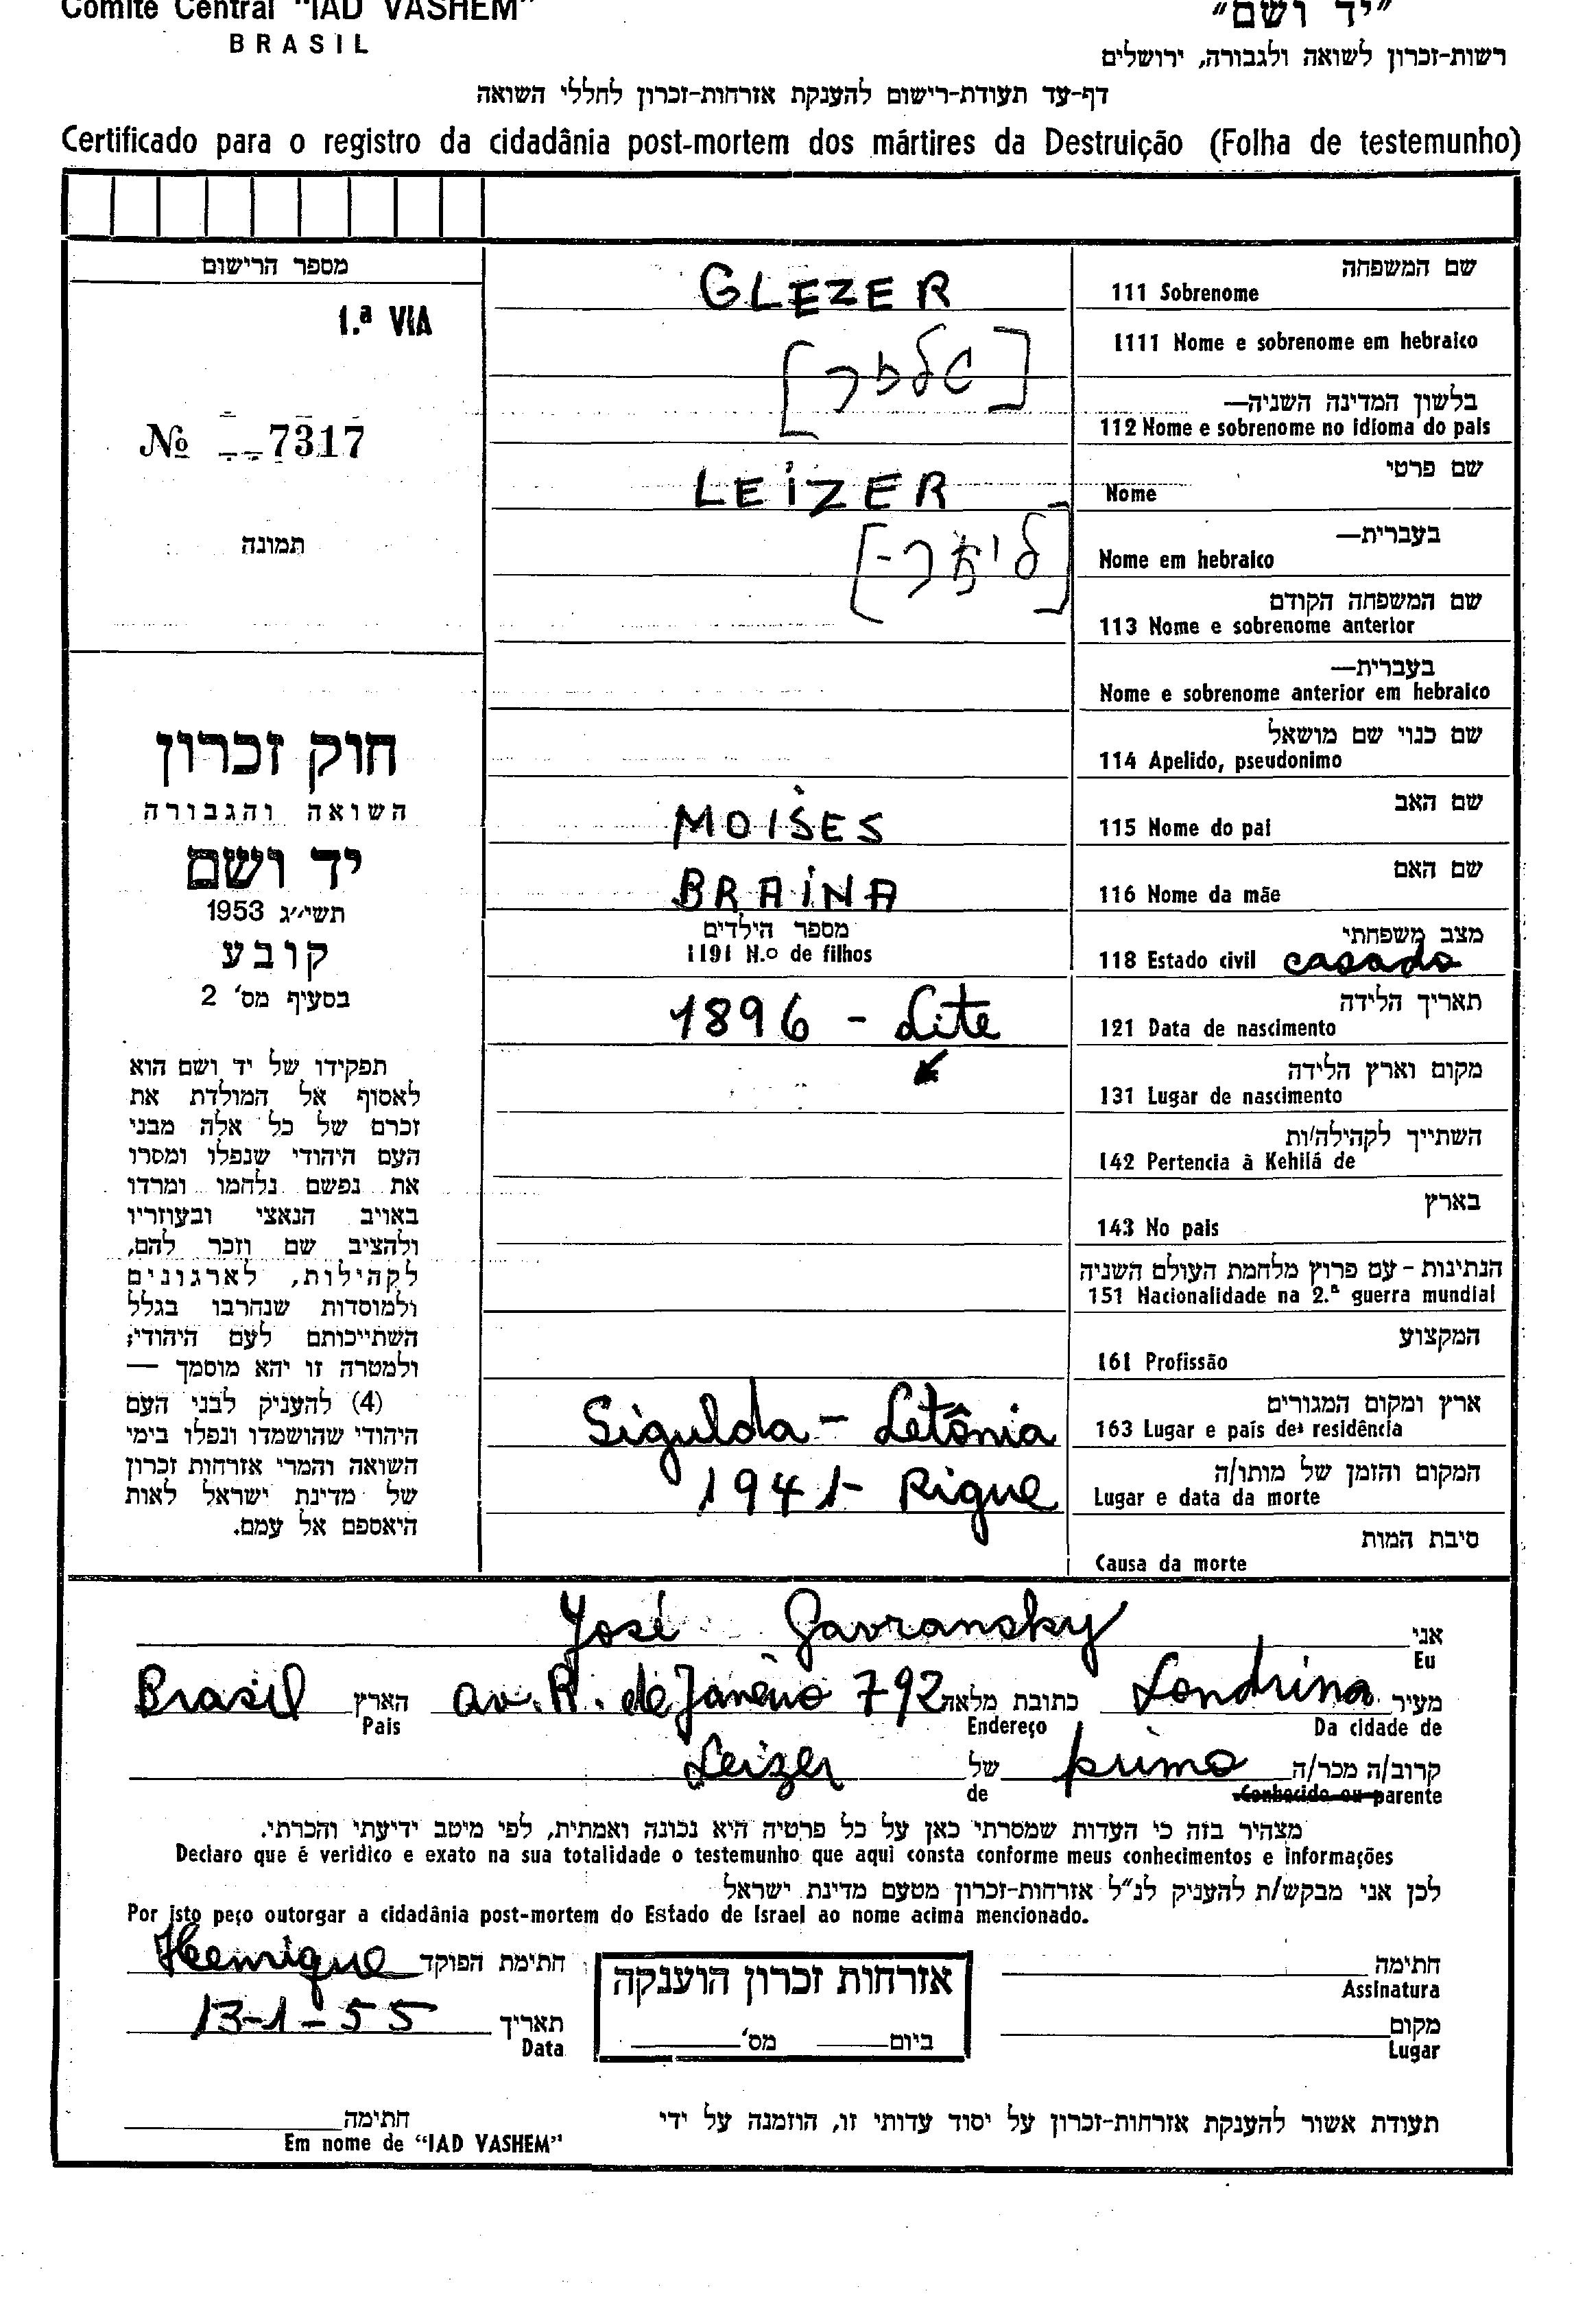 Comité Central "IAD VASHEM"
BRASIL
"יד ושם"
רשות-זכרון לשואה ולגבורה, ירושלים
דף-עד תעודת-רישום להענקת אזרחות-זכרון לחללי השואה
Certificado para o registro da cidadânia post-mortem dos mártires da Destruição (Folha de testemunho)
מספר הרישום
1.ª VIA
№ 7317
תמונה
חוק זכרון
השואה והגבורה
יד ושם
תשי״ג 1953
קובע
בסעיף מס' 2
תפקידו של יד ושם הוא
לאסוף אל המולדת את
זכרם של כל אלה מבני
העם היהודי שנפלו ומסרו
את נפשם נלחמו ומרדו
באויב הנאצי ובעוזריו
ולהציב שם וזכר להם,
לקהילות, לארגונים
ולמוסדות שנחרבו בגלל
השתייכותם לעם היהודי;
ולמטרה זו יהא מוסמך —
(4) להעניק לבני העם
היהודי שהושמדו ונפלו בימי
השואה והמרי אזרחות זכרון
של מדינת ישראל לאות
היאספם אל עמם.
שם המשפחה
111 Sobrenome GLEZER
1111 Nome e sobrenome em hebraico
בלשון המדינה השניה—
112 Nome e sobrenome no idioma do pais
שם פרטי
Nome LEIZER
בעברית—
Nome em hebraico
שם המשפחה הקודם
113 Nome e sobrenome anterior
בעברית—
Nome e sobrenome anterior em hebraico
שם כנוי שם מושאל
114 Apelido, pseudonimo
שם האב
115 Nome do pai MOISES
שם האם
116 Nome da mãe BRAINA
מצב משפחתי
118 Estado civil casado
מספר הילדים
1191 N.º de filhos
תאריך הלידה
121 Data de nascimento 1896 - Lite
מקום וארץ הלידה
131 Lugar de nascimento
השתייך לקהילה/ות
142 Pertencia à Kehilá de
בארץ
143 No pais
הנתינות - עם פרוץ מלחמת העולם השניה
151 Nacionalidade na 2.ª guerra mundial
המקצוע
161 Profissão
ארץ ומקום המגורים
163 Lugar e país de residência Sigulda - Letônia
המקום והזמן של מותו/ה
Lugar e data da morte 1941- Rigue
סיבת המות
Causa da morte
אני
Eu José Gavransky
מעיר Londrina כתובת מלאה av. R. de Janeiro 792 הארץ Brasil
Da cidade de Endereço Pais
קרוב/ה מכר/ה primo של Leizer
Conhecido ou parente de
מצהיר בזה כי העדות שמסרתי כאן על כל פרטיה היא נכונה ואמתית, לפי מיטב ידיעתי והכרתי.
Declaro que é veridico e exato na sua totalidade o testemunho que aqui consta conforme meus conhecimentos e informações
לכן אני מבקש/ת להעניק לנ"ל אזרחות-זכרון מטעם מדינת ישראל
Por isto peço outorgar a cidadânia post-mortem do Estado de Israel ao nome acima mencionado.
חתימה
Assinatura
מקום
Lugar
אזרחות זכרון הוענקה
ביום מס'
חתימת הפוקד Henrique
תאריך 13-1-55
Data
תעודת אשור להענקת אזרחות-זכרון על יסוד עדותי זו, הוזמנה על ידי
חתימה
Em nome de "IAD VASHEM"